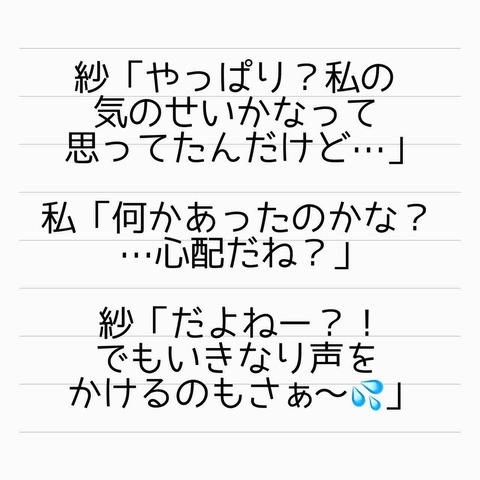 紗「やっぱり？私の
気のせいかなって
思ってたんだけど…」
私「何かあったのかな？
…心配だね？」
紗「だよねー？！
でもいきなり声を
かけるのもさぁ〜💦」